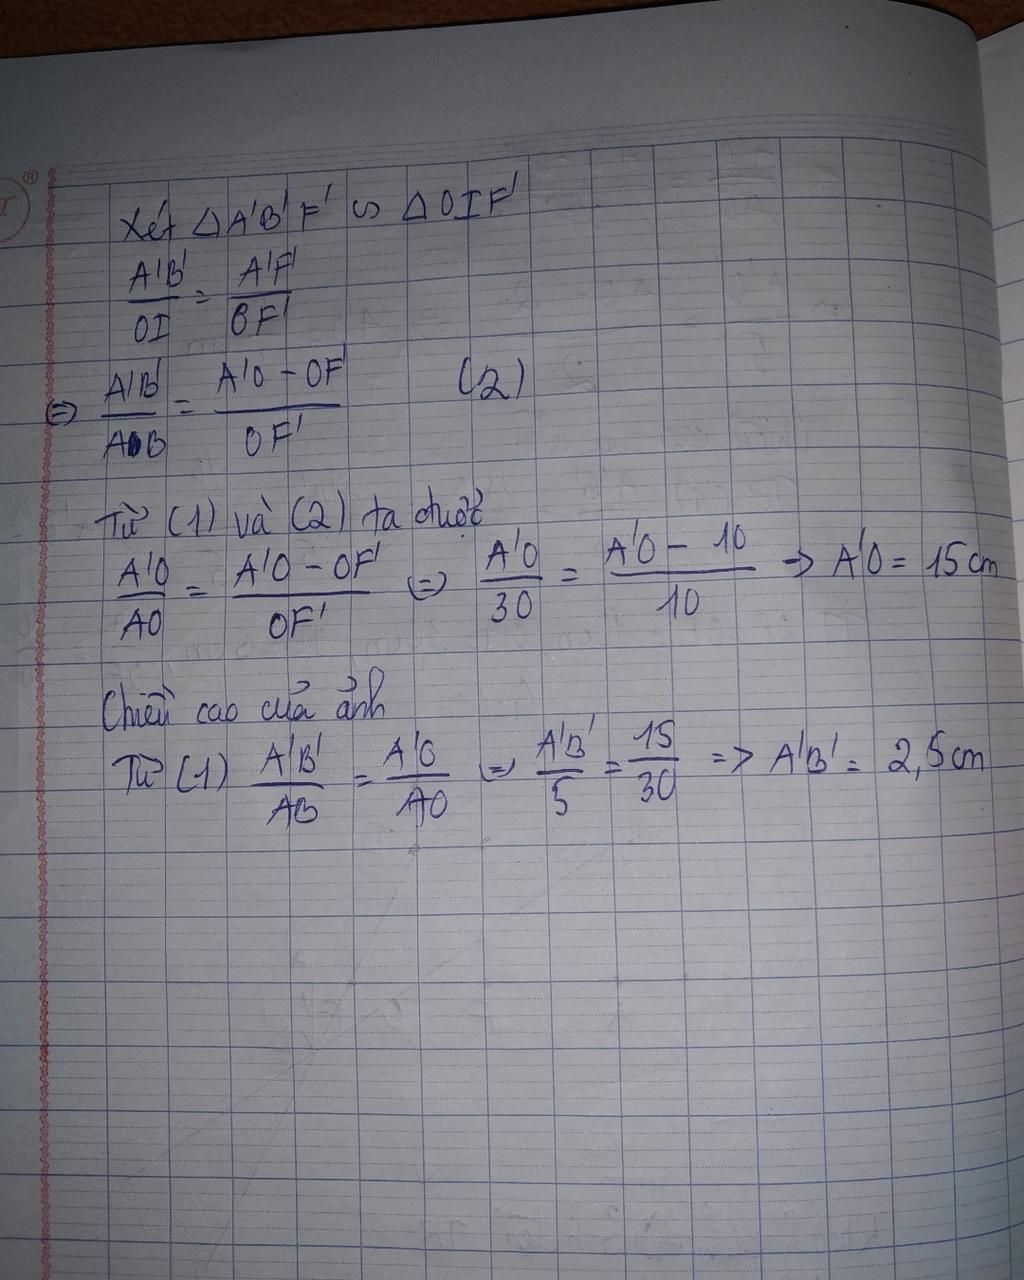 Xét ΔA'B'F' ∽ ΔOIF'
A'B'/OI = A'F'/OF'
⇔ A'B'/AB = A'O - OF'/OF' (2)
Từ (1) và (2) ta được
A'O/AO = A'O - OF'/OF' ⇔ A'O/30 = A'O - 10/10 → A'O = 15cm
Chiều cao của ảnh
Từ (1) A'B'/AB = A'O/AO ⇔ A'B'/5 = 15/30 => A'B' = 2,5cm